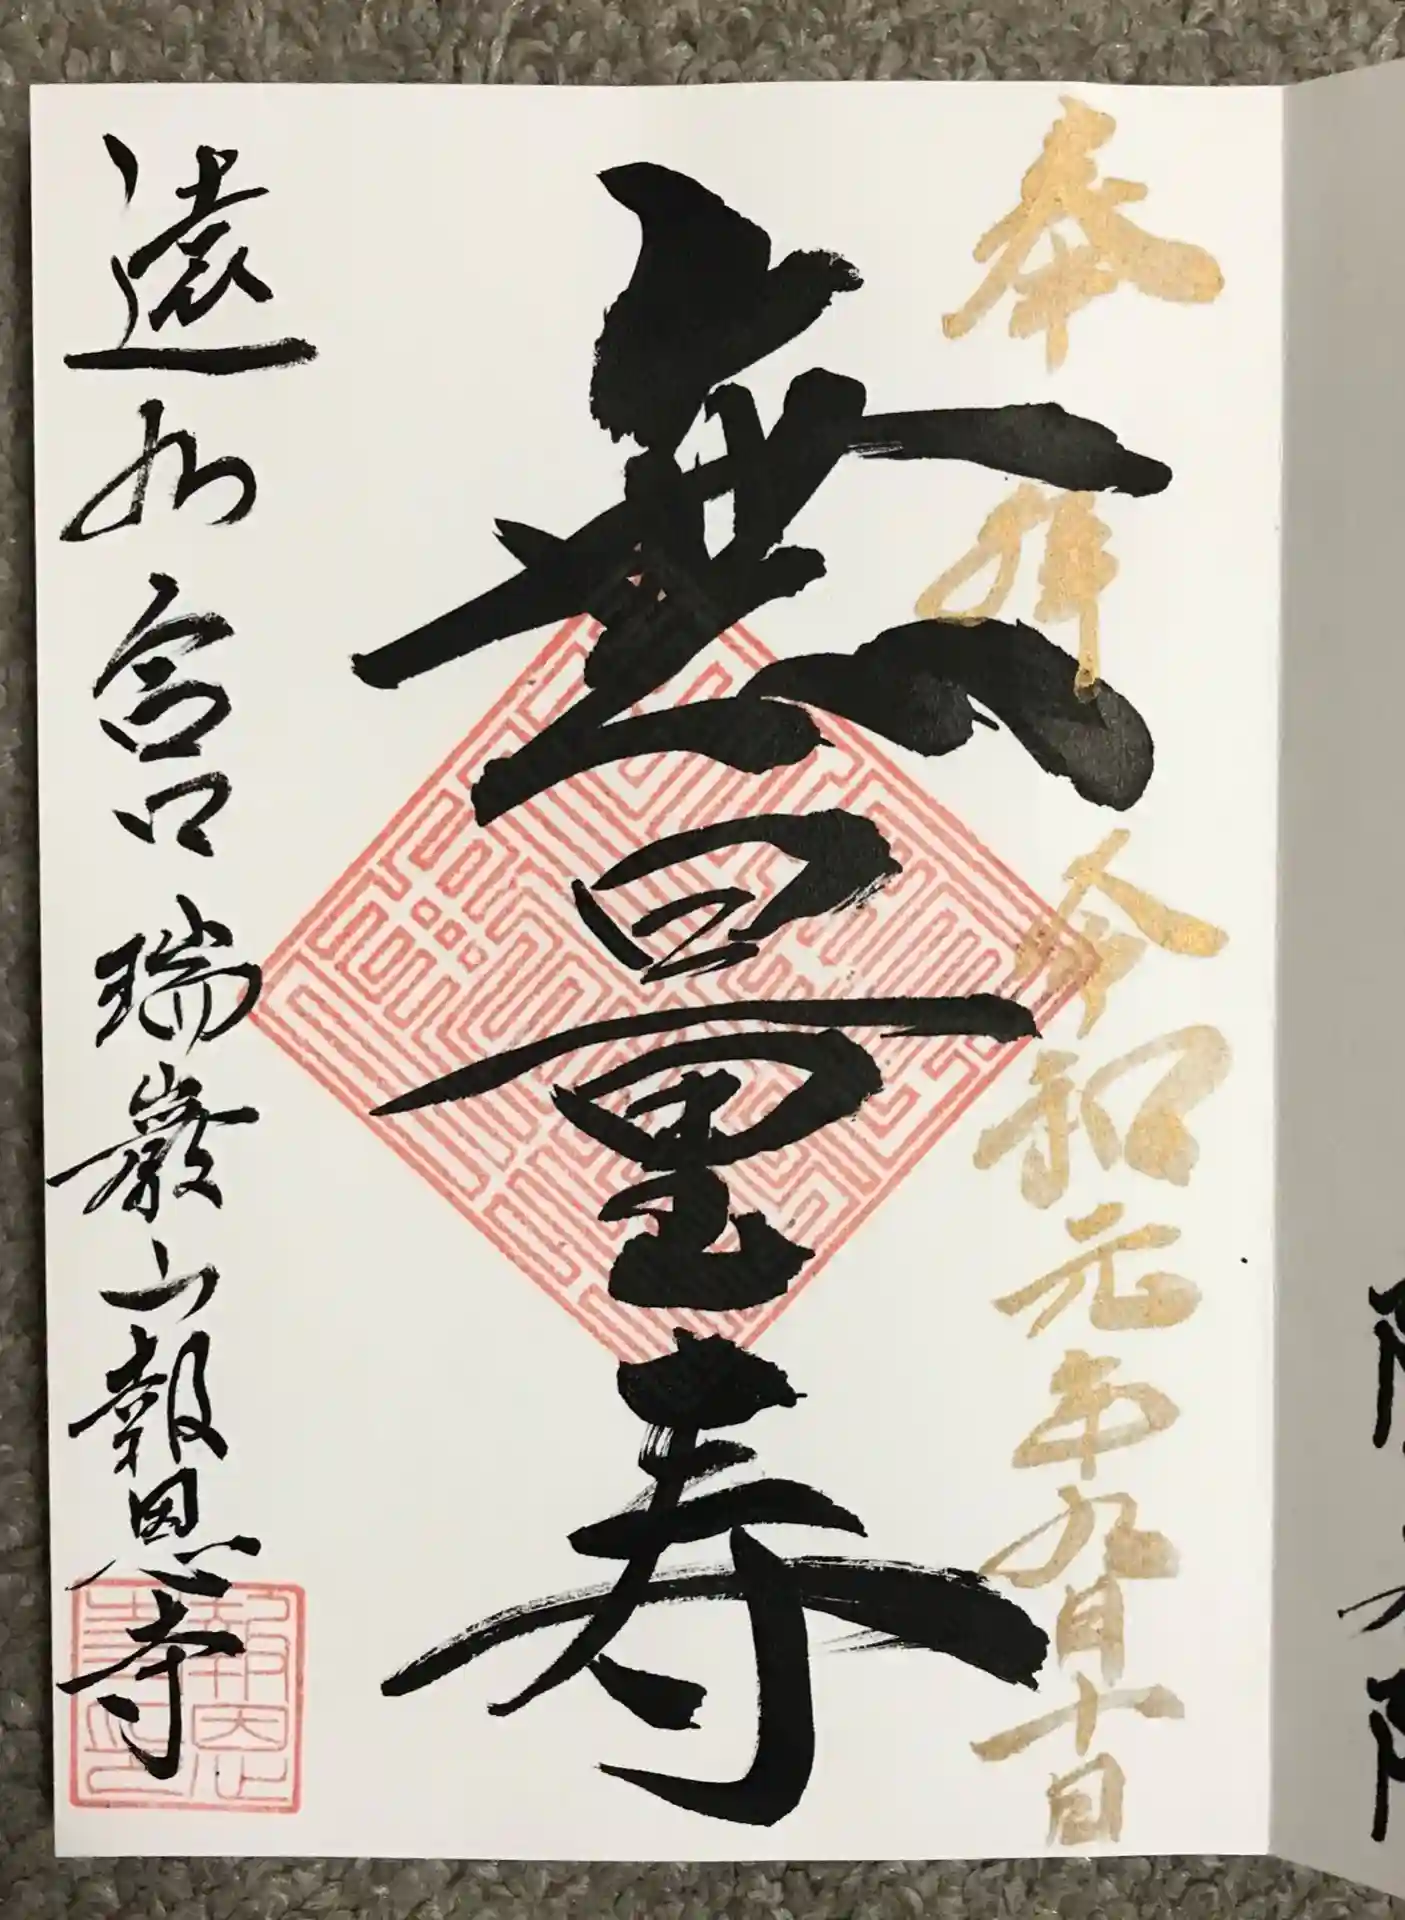 奉拝 令和元年九月十日
無量寿
遠州宮口 瑞巖山 報恩寺